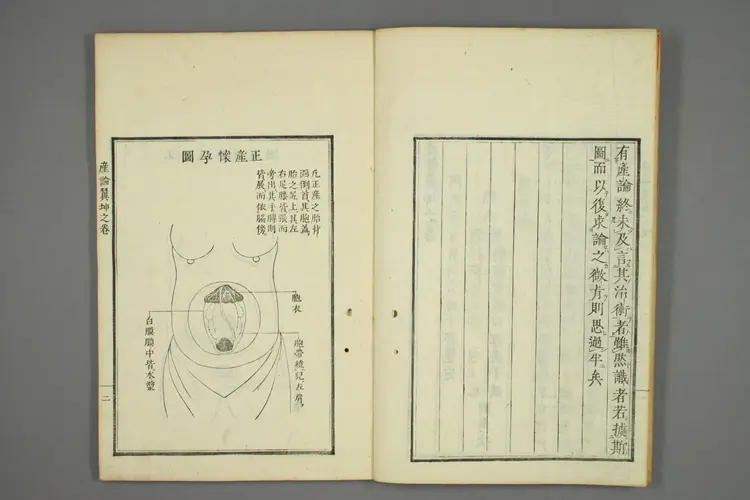 有產論終未及言其治術者雖然識者若據斯
圖而以復求論之微旨則思過半矣
正產懷孕圖
凡正產之胎背
面倒首其胞蓋
胎之尻上其左
右足膝皆張而
旁出其手臂則
皆展而依腦後
胞衣
胞帶繞兒左肩
白膜膜中皆水漿
產論翼坤之卷
二